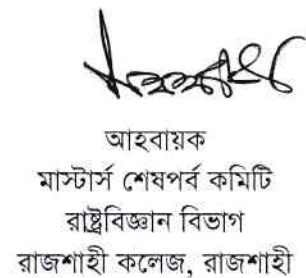 আহবায়ক
মাস্টার্স শেষপর্ব কমিটি
রাষ্ট্রবিজ্ঞান বিভাগ
রাজশাহী কলেজ, রাজশাহী